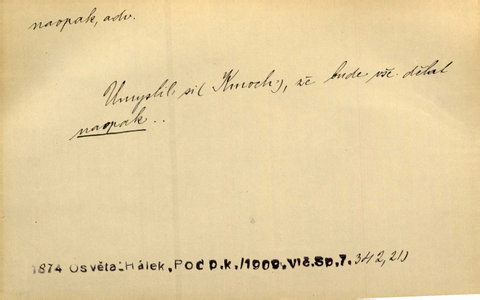 naopak, adv.
Umyslil si (Kmoch), že bude vše dělat
naopak..
1874 Osvěta-Hálek, Pod p.k./1909, Vlč.Sp.7. 342,21)